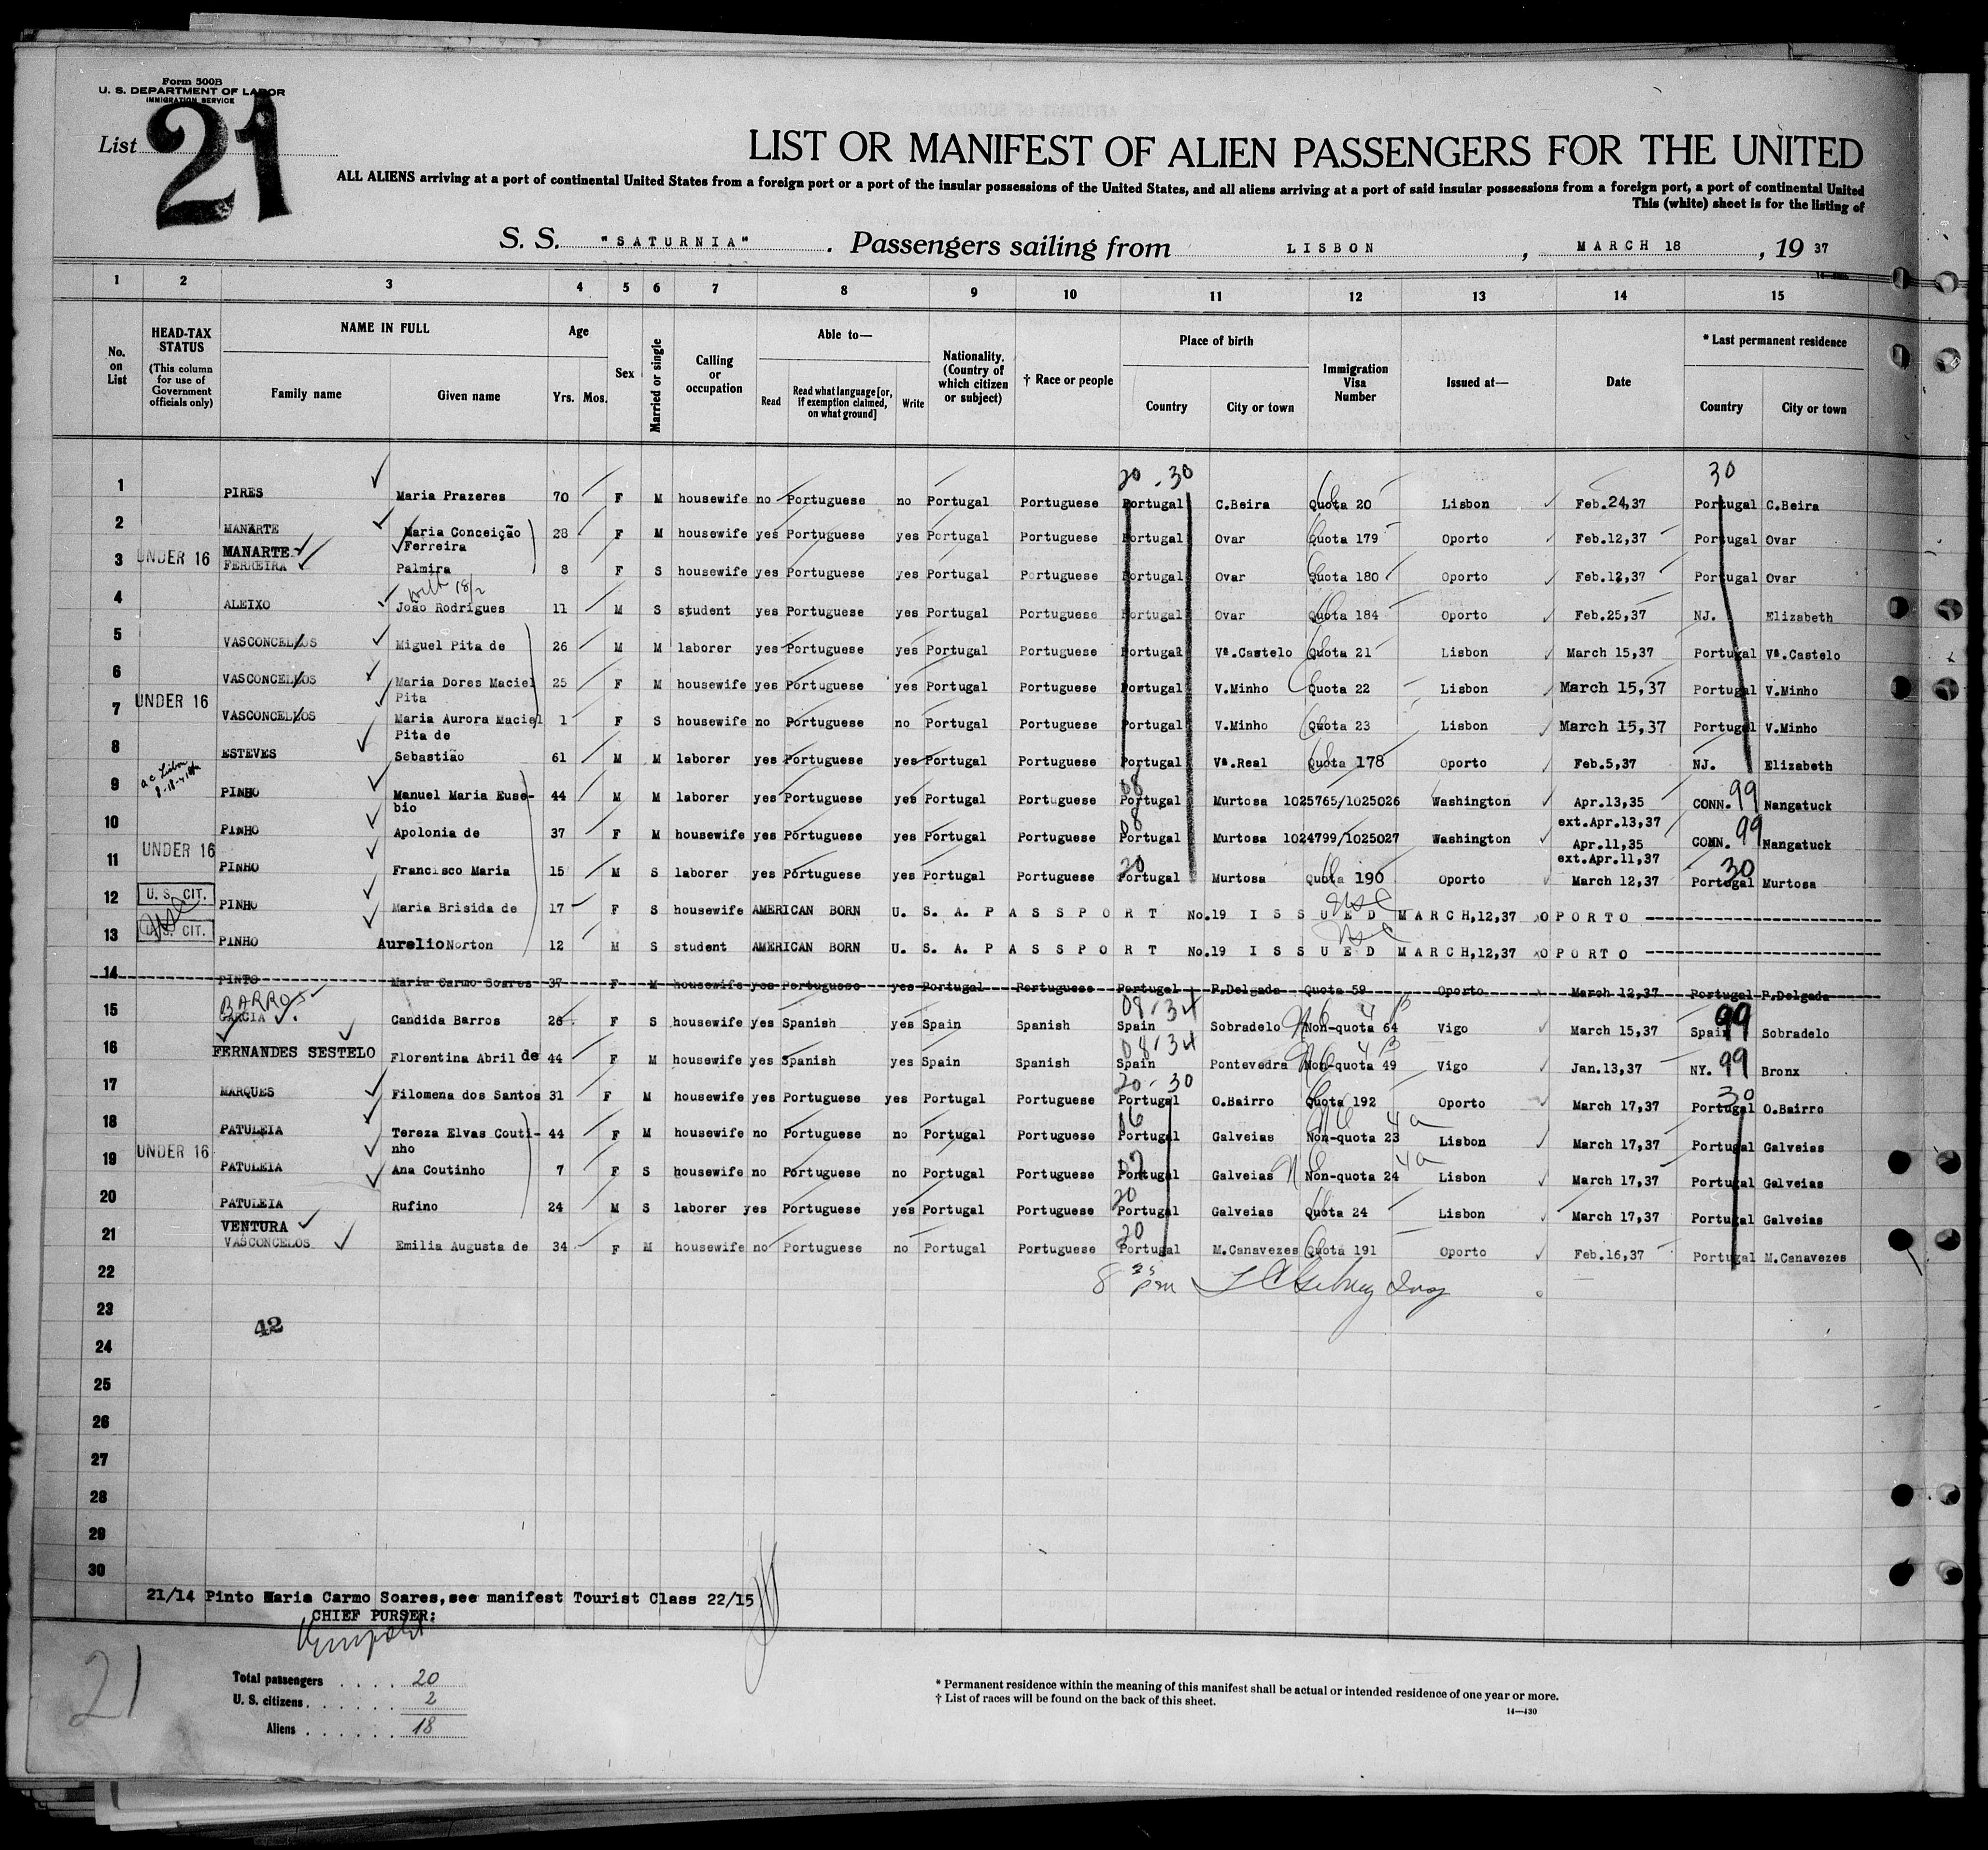 Form 500B
U. S. DEPARTMENT OF LABOR
IMMIGRATION SERVICE
List 21
LIST OR MANIFEST OF ALIEN PASSENGERS FOR THE UNITED
ALL ALIENS arriving at a port of continental United States from a foreign port or a port of the insular possessions of the United States, and all aliens arriving at a port of said insular possessions from a foreign port, a port of continental United
This (white) sheet is for the listing of
S. S. "SATURNIA" . Passengers sailing from LISBON , MARCH 18 , 19 37
1 2 3 4 5 6 7 8 9 10 11 12 13 14 15
No. on List
HEAD-TAX STATUS (This column for use of Government officials only)
NAME IN FULL Family name Given name
Age Yrs. Mos.
Sex
Married or single
Calling or occupation
Able to— Read Read what language [or, if exemption claimed, on what ground] Write
Nationality. (Country of which citizen or subject)
† Race or people
Place of birth Country City or town
Immigration Visa Number
Issued at—
Date
* Last permanent residence Country City or town
20 - 30 30
1 PIRES Maria Prazeres 70 F M housewife no Portuguese no Portugal Portuguese Portugal C.Beira Quota 20 Lisbon Feb.24,37 Portugal C.Beira
2 MANARTE Maria Conceição Ferreira 28 F M housewife yes Portuguese yes Portugal Portuguese Portugal Ovar Quota 179 Oporto Feb.12,37 Portugal Ovar
3 UNDER 16 MANARTE FERREIRA Palmira 8 F S housewife yes Portuguese yes Portugal Portuguese Portugal Ovar Quota 180 Oporto Feb.12,37 Portugal Ovar
with 18/2
4 ALEIXO João Rodrigues 11 M S student yes Portuguese yes Portugal Portuguese Portugal Ovar Quota 184 Oporto Feb.25,37 NJ. Elizabeth
5 VASCONCELLOS Miguel Pita de 26 M M laborer yes Portuguese yes Portugal Portuguese Portugal Vª.Castelo Quota 21 Lisbon March 15,37 Portugal Vª.Castelo
6 VASCONCELLOS Maria Dores Maciel Pita 25 F M housewife yes Portuguese yes Portugal Portuguese Portugal V.Minho Quota 22 Lisbon March 15,37 Portugal V.Minho
7 UNDER 16 VASCONCELLOS Maria Aurora Maciel Pita de 1 F S housewife no Portuguese no Portugal Portuguese Portugal V.Minho Quota 23 Lisbon March 15,37 Portugal V.Minho
8 ESTEVES Sebastião 61 M M laborer yes Portuguese yes Portugal Portuguese Portugal Vª.Real Quota 178 Oporto Feb.5,37 NJ. Elizabeth
9 PINHO Manuel Maria Euse-bio 44 M M laborer yes Portuguese yes Portugal Portuguese 08 Portugal Murtosa 1025765/1025026 Washington Apr.13,35 ext.Apr.13,37 CONN. 99 Nangatuck
10 PINHO Apolonia de 37 F M housewife yes Portuguese yes Portugal Portuguese 08 Portugal Murtosa 1024799/1025027 Washington Apr.11,35 ext.Apr.11,37 CONN. 99 Nangatuck
11 UNDER 16 PINHO Francisco Maria 15 M S laborer yes Portuguese yes Portugal Portuguese 20 Portugal Murtosa Quota 190 Oporto March 12,37 30 Portugal Murtosa
12 U. S. CIT. PINHO Maria Brisida de 17 F S housewife AMERICAN BORN U. S. A. PASSPORT No.19 ISSUED MARCH,12,37 OPORTO
13 U. S. CIT. PINHO Aurelio Norton 12 M S student AMERICAN BORN U. S. A. PASSPORT No.19 ISSUED MARCH,12,37 OPORTO
14 PINTO Maria Carmo Soares 37 F M housewife yes Portuguese yes Portugal Portuguese Portugal P.Delgada Quota 59 Oporto March 12,37 Portugal P.Delgada
15 BARROS GARCIA Candida Barros 26 F S housewife yes Spanish yes Spain Spanish 08/34 Spain Sobradelo Non-quota 64 4 B Vigo March 15,37 Spain 99 Sobradelo
16 FERNANDES SESTELO Florentina Abril de 44 F M housewife yes Spanish yes Spain Spanish 08/34 Spain Pontevedra Non-quota 49 4 B Vigo Jan.13,37 NY. 99 Bronx
17 MARQUES Filomena dos Santos 31 F M housewife yes Portuguese yes Portugal Portuguese 20 - 30 Portugal O.Bairro Quota 192 Oporto March 17,37 30 Portugal O.Bairro
18 PATULEIA Tereza Elvas Couti-nho 44 F M housewife no Portuguese no Portugal Portuguese 16 Portugal Galveias Non-quota 23 4a Lisbon March 17,37 Portugal Galveias
19 UNDER 16 PATULEIA Ana Coutinho 7 F S housewife no Portuguese no Portugal Portuguese Portugal Galveias Non-quota 24 4a Lisbon March 17,37 Portugal Galveias
20 PATULEIA Rufino 24 M S laborer yes Portuguese yes Portugal Portuguese 20 Portugal Galveias Quota 24 Lisbon March 17,37 Portugal Galveias
21 VENTURA VASCONCELOS Emilia Augusta de 34 F M housewife no Portuguese no Portugal Portuguese 20 Portugal M.Canavezes Quota 191 Oporto Feb.16,37 Portugal M.Canavezes
22 8 pm
23 42
24
25
26
27
28
29
30
21/14 Pinto Maria Carmo Soares,see manifest Tourist Class 22/15
CHIEF PURSER:
21
Total passengers 20
U. S. citizens 2
Aliens 18
* Permanent residence within the meaning of this manifest shall be actual or intended residence of one year or more.
† List of races will be found on the back of this sheet.
14—430